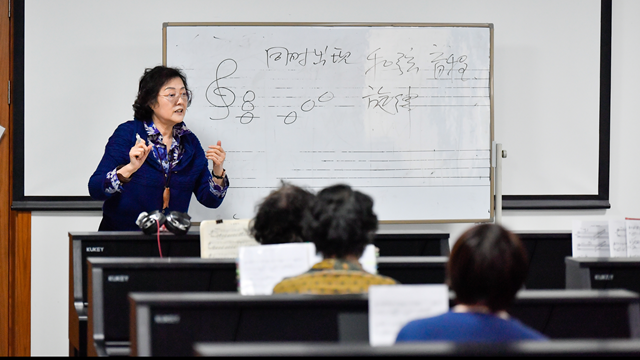 同时出现 和弦 音程
旋律
KUKEY
KUKEY
KUKEY
KUKEY